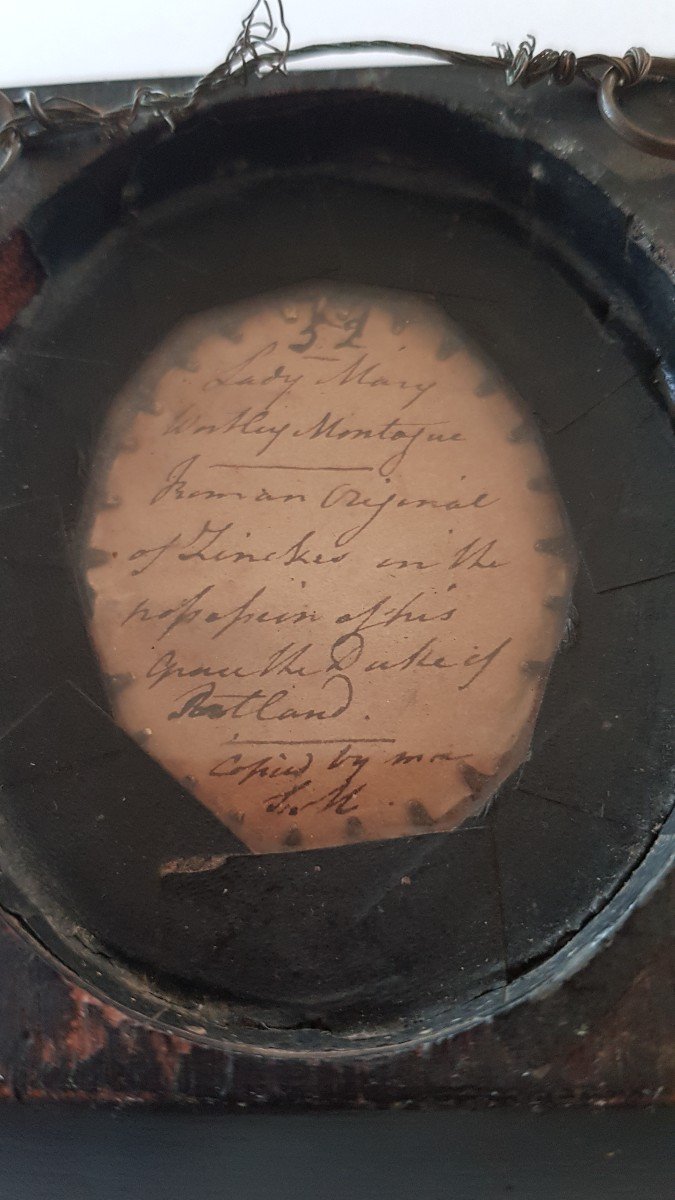 52
Lady Mary
Wortley Montague
From an Original
of Zinckes in the
possession of his
Grace the Duke of
Rutland.
Copied by me
S.M.